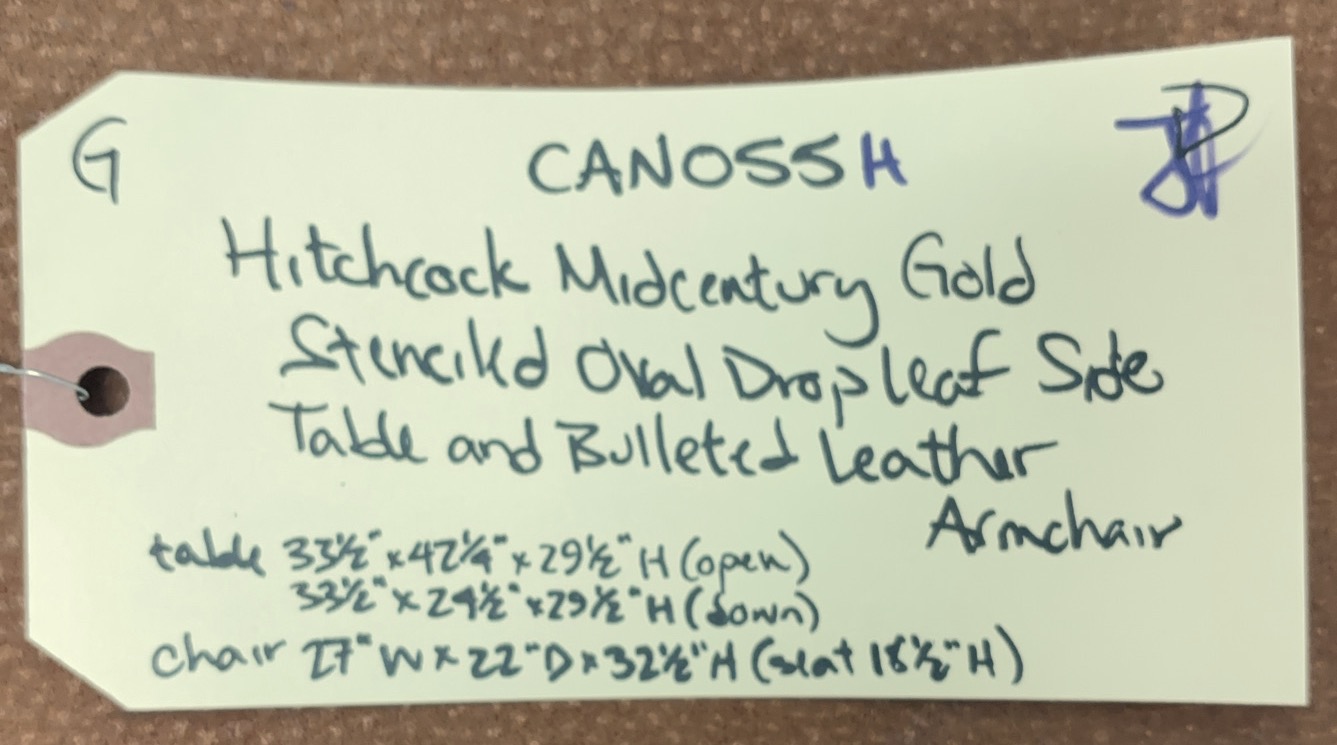 G CANO55H
Hitchcock Midcentury Gold
Stenciled Oval Drop leaf Side
Table and Bulleted Leather
Armchair
table 33½" x 42¼" x 29½" H (open)
33½" x 24½" x 29½" H (down)
chair 27" W x 22" D x 32½" H (seat 18½" H)